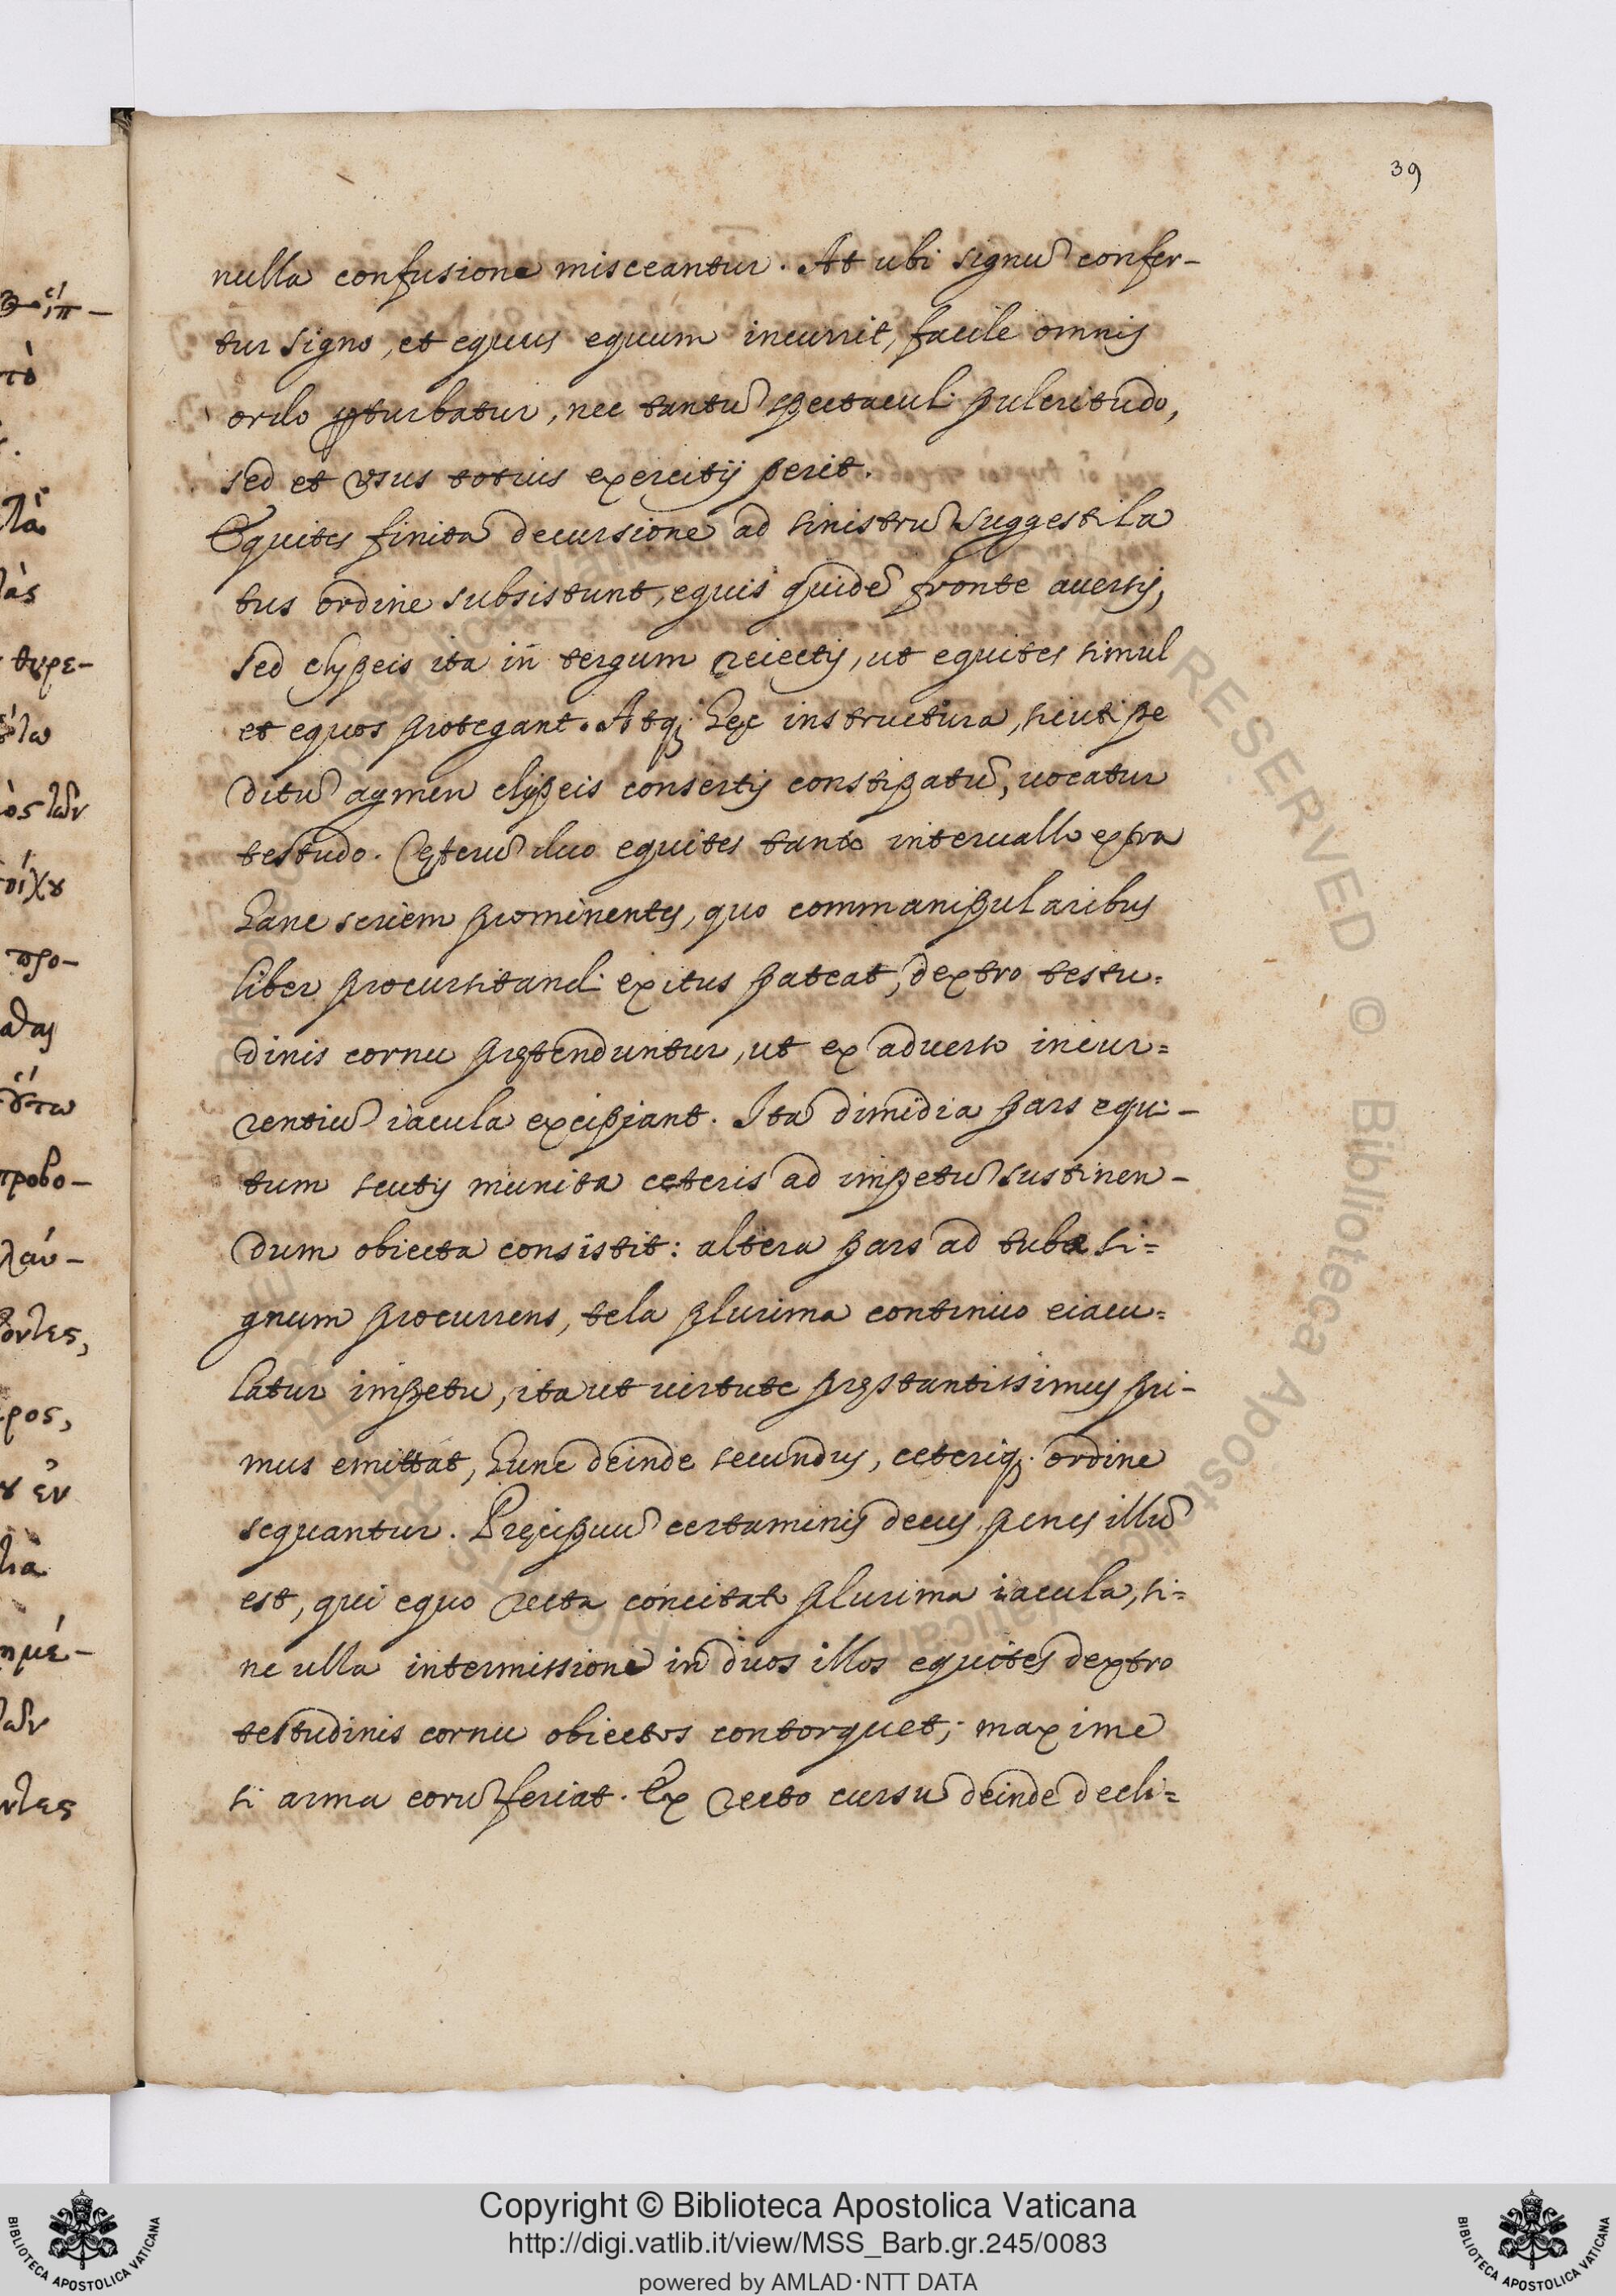 39
nulla confusione misceantur. At ubi signũ confer-
tur signo, et equus equum incurrit, facile omnis
ordo ꝑturbatur, nec tantũ spectaculi pulcritudo,
sed et usus totius exercitij perit.
Equites finita decursione ad sinistrũ suggesti la
tus ordine subsistunt, equis quidẽ fronte auersis,
sed clypeis ita in tergum reiectis, ut equites simul
et equos protegant. Atq; hęc instructura, sicuti pe
ditũ agmen clypeis consertis constipatũ, uocatur
testudo. Cęterũ duo equites tanto interuallo extra
hanc seriem prominentes, quo commanipularibus
liber procursitandi exitus pateat, dextro testu=
dinis cornu prętenduntur, ut ex aduerso incur=
rentiũ iacula excipiant. Ita dimidia pars equi-
tum scutis munita ceteris ad impetũ sustinen-
dum obiecta consistit: altera pars ad tubę si=
gnum procurrens, tela plurima continuo eiacu=
latur impetu, ita ut uirtute pręstantissimus pri-
mus emittat, hunc deinde secundus, ceteriq; ordine
sequantur. Pręcipuũ certaminis decus penes illũ
est, qui equo recta concitato plurima iacula, si=
ne ulla intermissione in duos illos equites dextro
testudinis cornu obiectos contorquet; maxime
si arma eorũ feriat. Ex recto cursu deinde decli=
τὸ
λὰ
λὰς
θυρε-
προ-
προβο-
λαύ-
ρος,
ημέ-
Copyright © Biblioteca Apostolica Vaticana
http://digi.vatlib.it/view/MSS_Barb.gr.245/0083
powered by AMLAD·NTT DATA
BIBLIOTECA APOSTOLICA VATICANA
BIBLIOTECA APOSTOLICA VATICANA